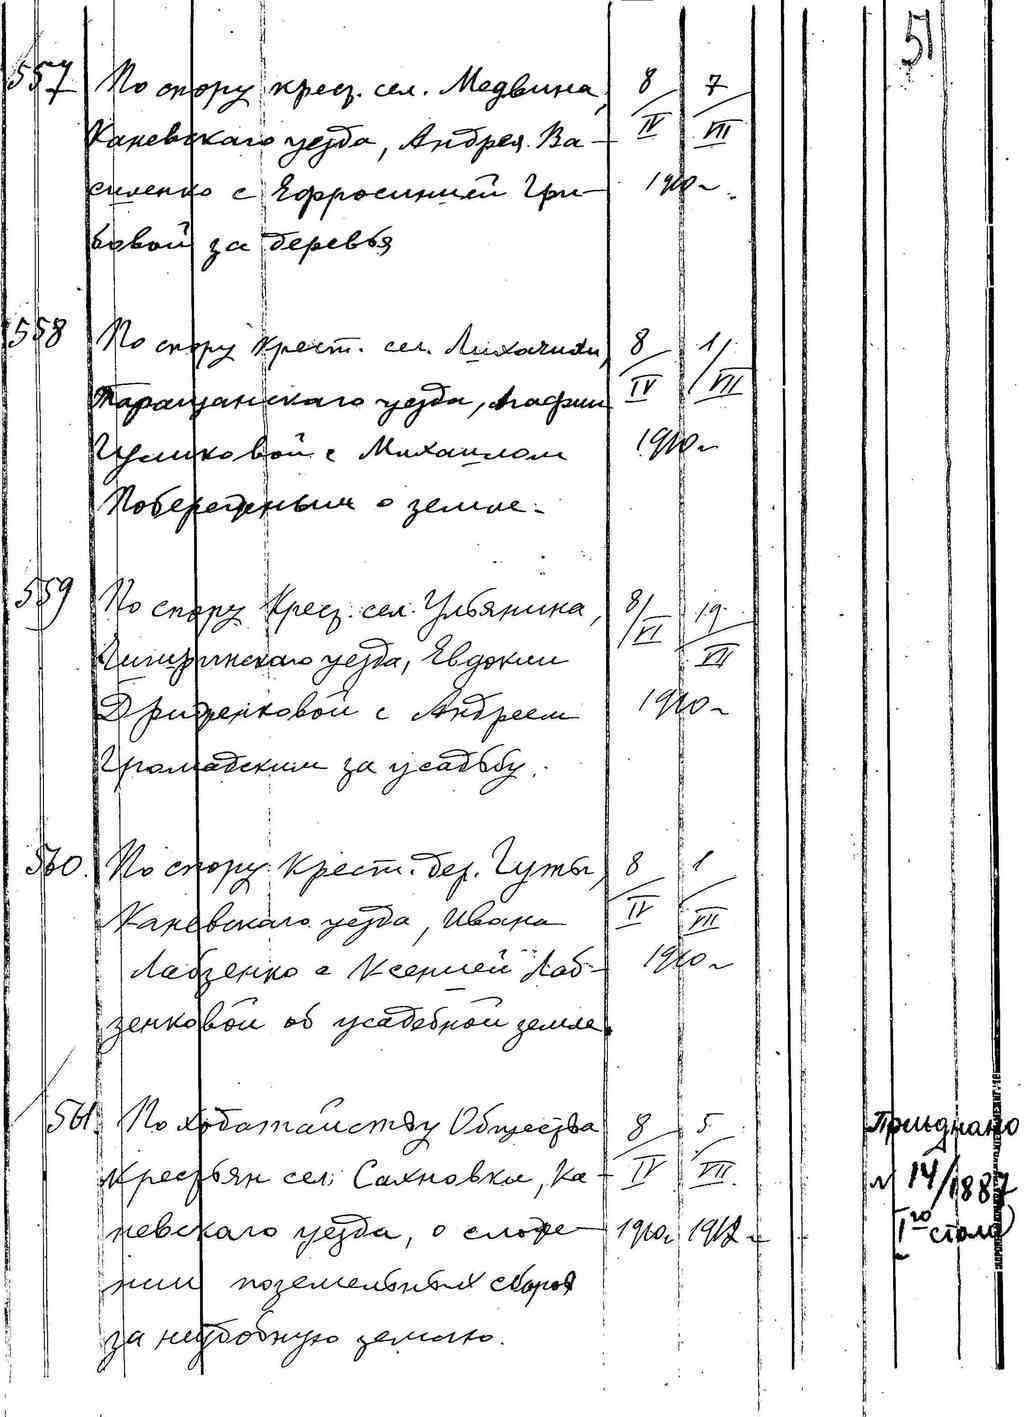 51
557 По спору крест. сел. Медвина, 8/IV 7/VII
Каневскаго уезда, Андрея Ва-
силенко с Ефросинией Гри- 1910 г.
бовой за деревья
558 По спору крест. сел. Лихачихи, 8/IV 1/VII
Таращанскаго уезда, Агафии
Гуликовой с Михаилом 1910 г
Побережным о земле.
559 По спору Крест. сел. Ульянина, 8/VI 19/VII
уезда, Евдокии
с Андреем 1910 г
Громадским за усадьбу.
560. По спору Крест. дер. Гуты, 8/IV 1/VII
Каневскаго уезда, Ивана
Лабзенко с Ксенией Лаб- 1910 г
зенковой об усадебной земле.
561. По ходатайству Общества 8/IV 5/VII Приднано
Крестьян сел. Сахновки, Ка- к 14/1887
невскаго уезда, о сложе- 1910 г. 1912 г. Iго стола
нии поземельных сборов
за неудобную землю.